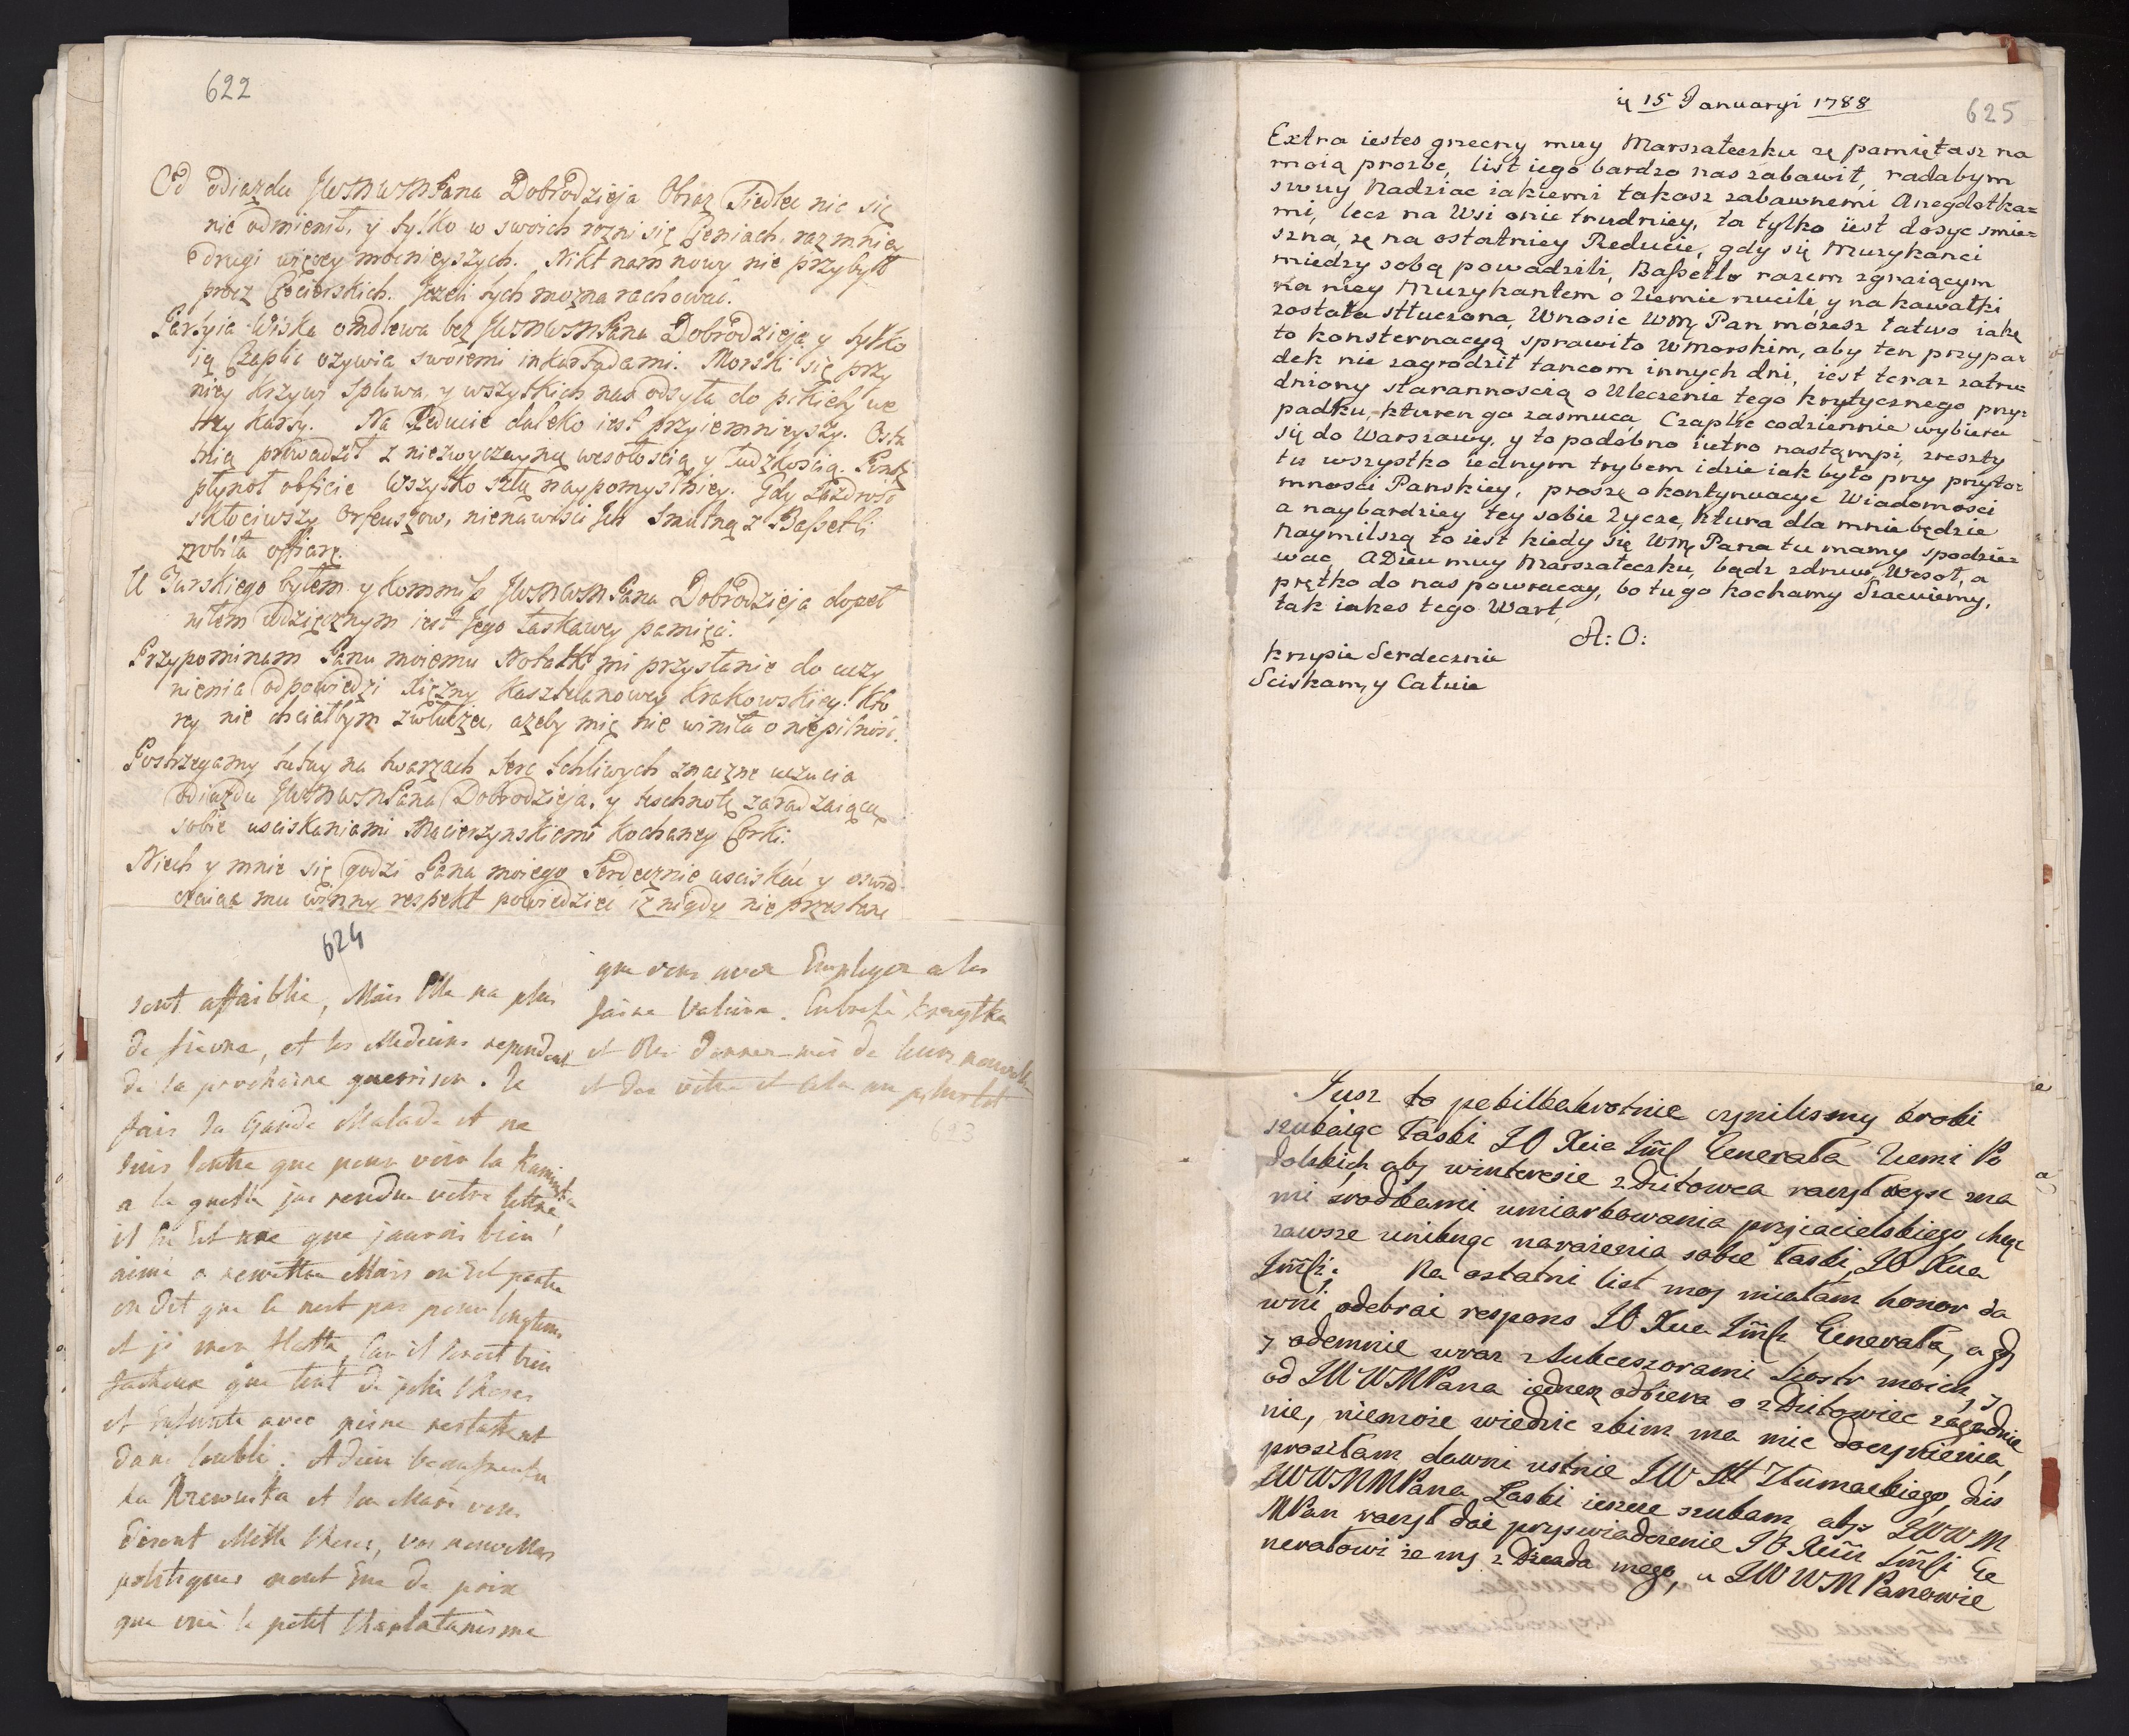 622
Od odiazdu JWWMPana Dobrodzieja Obraz Siedlec nic się
nie odmienił, y tylko w swoich rozni się Cieniach, raz mniey
drugi więcey mocnieyszych. Nikt nam nowy nie przybył
procz Cieciorskich. Jezeli tych mozna rachować.
Partyia Wiska omdlewa bez JWWMPana Dobrodzieja, y tylko
ią Czaplic ozywia swoiemi inkartadami. Morski się przy
niey krzywi spluwa, y wszystkich nas odsyła do pikiety we
trzy karty. Na Reducie daleko iest przyiemnieyszy. Osta
tnią prowadził z niezwyczayną wesołoscią y ludzkoscią. Poncz
płynoł obficie Wszystko szło naypomyslniey. Gdy Zazdrość
skłociwszy Orfeuszow, nienawisci Ich smutną z Bassetli
zrobiła offiarę.
U Jarskiego byłem y kommiss JWWMPana Dobrodzieja dopeł
niłem wdzięcznym iest Jego łaskawey pamięci.
Przypominam Panu moiemu Notatki mi przysłanie do uczy
nienia odpowiedzi Xiężny Kasztelanowey Krakowskiey. Kto
rey nie chciałbym zwłuczyc, ażeby mię nie winiła o niepilnosc.
Postrzegamy tutay na twarzach serc tchliwych znaczne uczucia
odiazdu JWWMPana Dobrodzieja, y teschnotę zaradzaiącą
sobie usciskaniami Macierzynskiemi Kochaney Corki.
Niech y mnie się godzi Pana moiego Serdecznie usciskać y oswiad
czaiąc mu winny respekt powiedzieć iz nigdy nie przestanę
624
sont affaiblie, Mais Elle na plus
de fievre, et les Medecins rependent
de sa prochaine guerrison. Je
fais la Garde Malade et ne
suis sortie que pour voir la
a la quelle jai rendue votre lettre,
il Est que jaurois bien
aimé a remettre Mais on Est partie
on dit que ce nest pas pour longtems
et je men flatte, car il seroit bien
facheux que tent de jolie choses
et avec peine restassent
dans loubli. Adieu
La et son Mari vous
disent Mille choses, vos nouvelles
politiques nont Eue de prix
que que le petit Charlatanisme
que vous avez Employer a les
faire valoire. Krzystka
et Donnez-moi de leurs nouvelles
et des votre et cela au plustot
623
ię 15 Januaryi 1788
625
Extra iestes grzeczny muy Marszałeczku zę pamiętasz na
moią prozbę, list iego bardzo nas zabawił, radabym
swuy Nadziac iakiemi takosz zabawnemi Anegdotka=
mi, lecz na Wsi onie trudniey, ta tylko iest dosyc smie=
szna, zę na ostatniey Reducie, gdy się Muzykanci
miedzy sobą powadzili, Bassetlo razem zgraiącym
na niey Muzykantem o Ziemie rucili, y na kawałki
została stłuczona, Wnosic WMę Pan możesz łatwo iakę
to konsternacyą sprawiło wmorskim, aby ten przypa=
dek nie zagrodził tancom innych dni, iest teraz zatru=
dniony starannoscią o Uleczenie tego krytycznego przy=
padku, kturen go zasmuca Czaplic codziennie wybiera
się do Warszawy, y to podobno iutro nastąmpi, zreszty
tu wszystko iednym trybem idzie iak było przy przyto=
mnosci Panskiey, proszę o kontynuacye Wiadomosci
a naybardziey tey sobie życze, ktura dla mnie będzie
naymilszą to iest kiedy się WMę Pana tu mamy spodzie=
wac, ADieu muy Marszałeczku, bądz zdruw, Wesoł, a
prętko do nas powracay, bo tu go kochamy Szacuiemy,
tak iakes tego Wart,
A: O:
krzysie Serdecznie
Sciskam, y Całuie
Jusz to pokilkakrotnie czynilismy kroki
szukaiąc łaski JO Xcia Jmsc Generała Ziemi Po
dolskich, aby winteresie zDzitowca raczył bydz zna
mi srodkami umiarkowania przyiacielskiego, chcąc
zawsze uniknąc narażenia sobie łaski JO Xcia
Jmsci. Na ostatni list moj miałam honor da
wni odebrai respons JO Xcia Jmsci Generała, a gdy
y odemnie wraz zSukcessorami siostr moich, y
od JWWMPana iednez odbiera o zDzitowiec zagadnie
nie, niemoże wiedzic zkim ma mic doczynienia,
prosiłam dawni ustnie JW Tłumackiego, dzis
JWWMMPana Łaski ieszcze szukam, aby JWWM
MPan raczył dai przyswiadczenie JO Xciu Jmsci Ge
nerałowi że my z Dziada mego, a JWWMPanowie